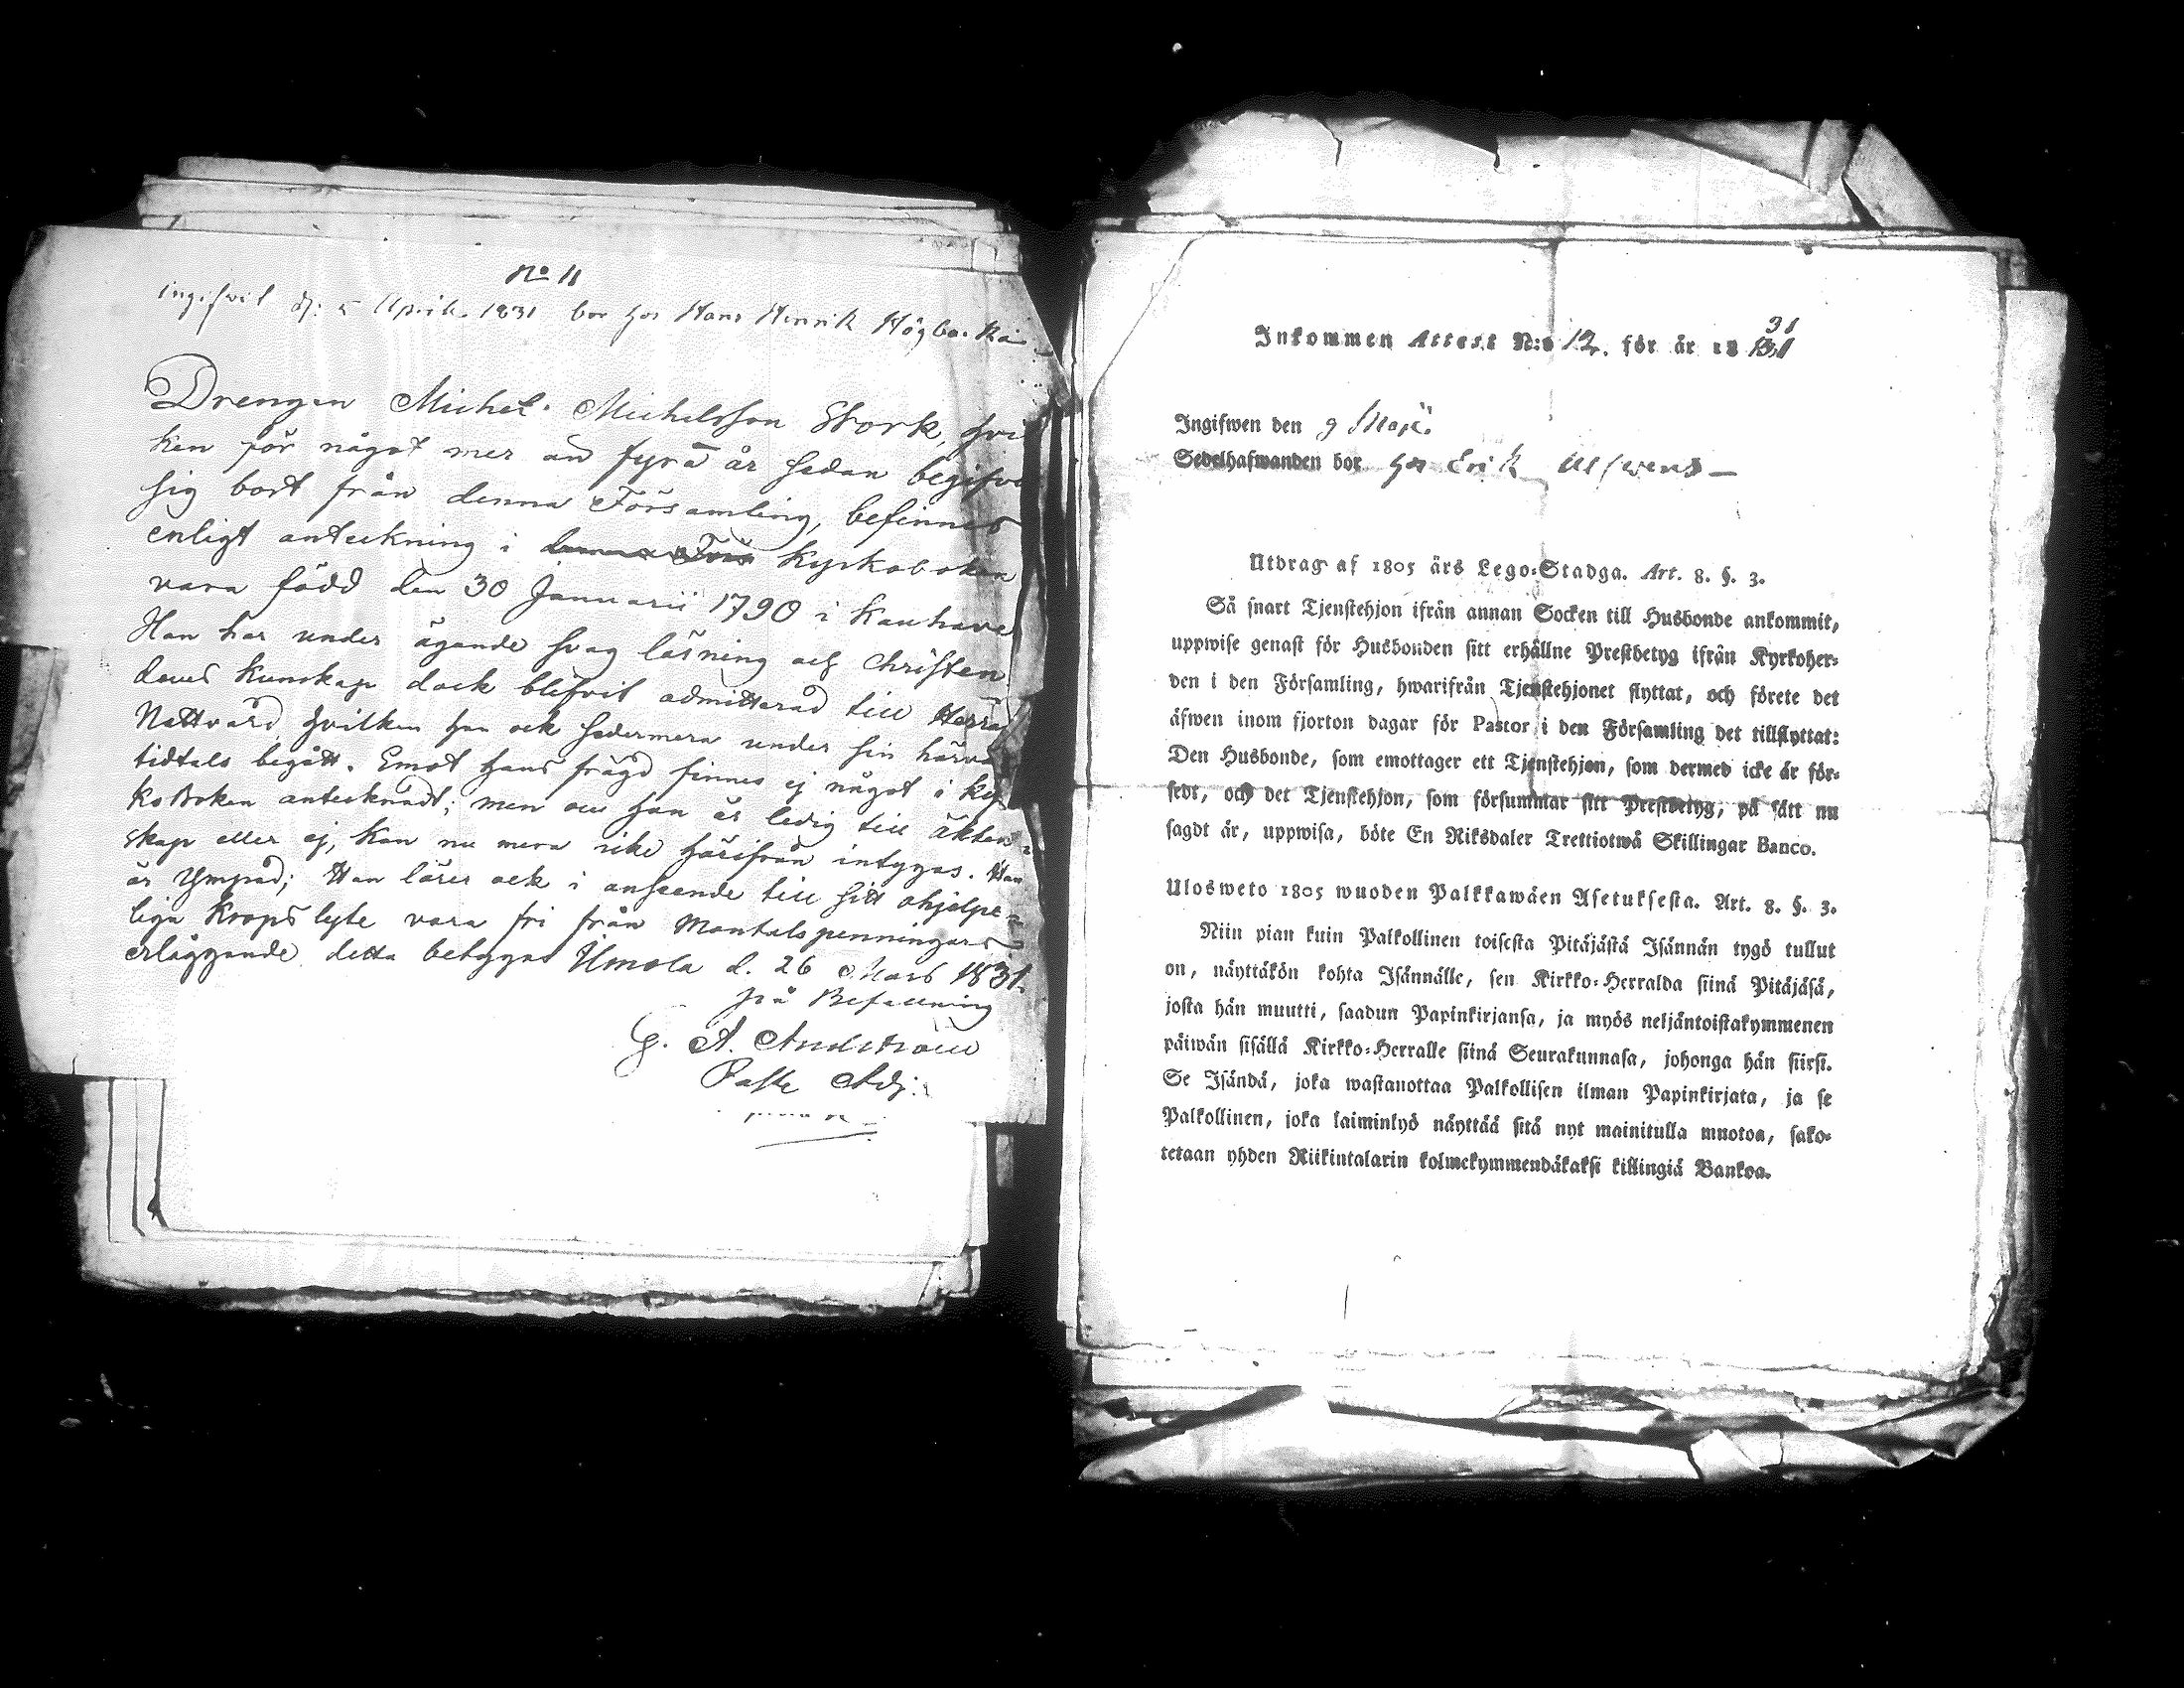 No 11
ingifvit d: 5 April. 1831 bor hos Hans Henrik Högba
Drengen Michel Michelsson Stork, hvil
ken för något mer än fyra år sedan begifvi
sig bort från denna Församling, befinnes
enligt anteckning i denna Förs Kyrkoboken
vara född den 30 Januarii 1790 i Kauhava
Han har under ägande svag läsning och Christen
doms kunskap dock blifvit admitterad till Herrans
Nattvard, hvilken han ock sedermera under sin härva
tidtals begått. Emot hans frägd finnes ej något i kyr
koboken antecknadt; men om han är ledig till äkten=
skap eller ej, kan nu mera icke härifrån intygas. Han
är Ympad; Han lärer ock i anseende till sitt ohjelpe=
liga kropslyte vara fri från Mantalspenningars
erläggande. detta betygas Ilmola d. 26 Mars 1831.
på Befallning
G. A. Andström
Past: Adj:
Inkommen Attest N:o 12. för år 18 31 31
Ingifwen den 9 Maji.
Sedelhafwanden bor hos Erik
Utdrag af 1805 års Lego-Stadga. Art. 8. §. 3.
Så snart Tjenstehjon ifrån annan Socken till Husbonde ankommit,
uppwise genast för Husbonden sitt erhållne Prestbetyg ifrån Kyrkoher-
den i den Församling, hwarifrån Tjenstehjonet flyttat, och förete det
äfwen inom fjorton dagar för Pastor i den Församling det tillflyttat:
Den Husbonde, som emottager ett Tjenstehjon, som dermed icke är för-
sedt, och det Tjenstehjon, som försummar sitt Prestbetyg, på sätt nu
sagdt är, uppwisa, böte En Riksdaler Trettiotwå Skillingar Banco.
Ulosweto 1805 wuoden Palkkawäen Asetuksesta. Art. 8. §. 3.
Niin pian kuin Palkollinen toisesta Pitäjästä Isännän tygö tullut
on, näyttäkön kohta Isännälle, sen Kirkko-Herralda siinä Pitäjäsä,
josta hän muutti, saadun Papinkirjansa, ja myös neljäntoistakymmenen
päiwän sisällä Kirkko-Herralle siinä Seurakunnasa, johonga hän siirsi.
Se Isändä, joka wastanottaa Palkollisen ilman Papinkirjata, ja se
Palkollinen, joka laiminlyö näyttää sitä nyt mainitulla muotoa, sako-
tetaan yhden Riikintalarin kolmekymmendäkaksi killingiä Bankoa.